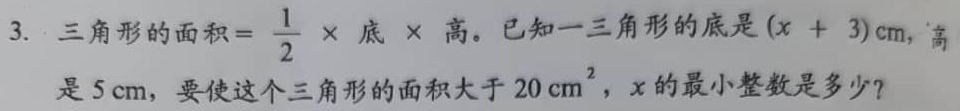 3. 三角形的面积 = 1/2 × 底 × 高。已知一三角形的底是 (x + 3) cm, 高
是 5 cm, 要使这个三角形的面积大于 20 cm², x 的最小整数是多少?